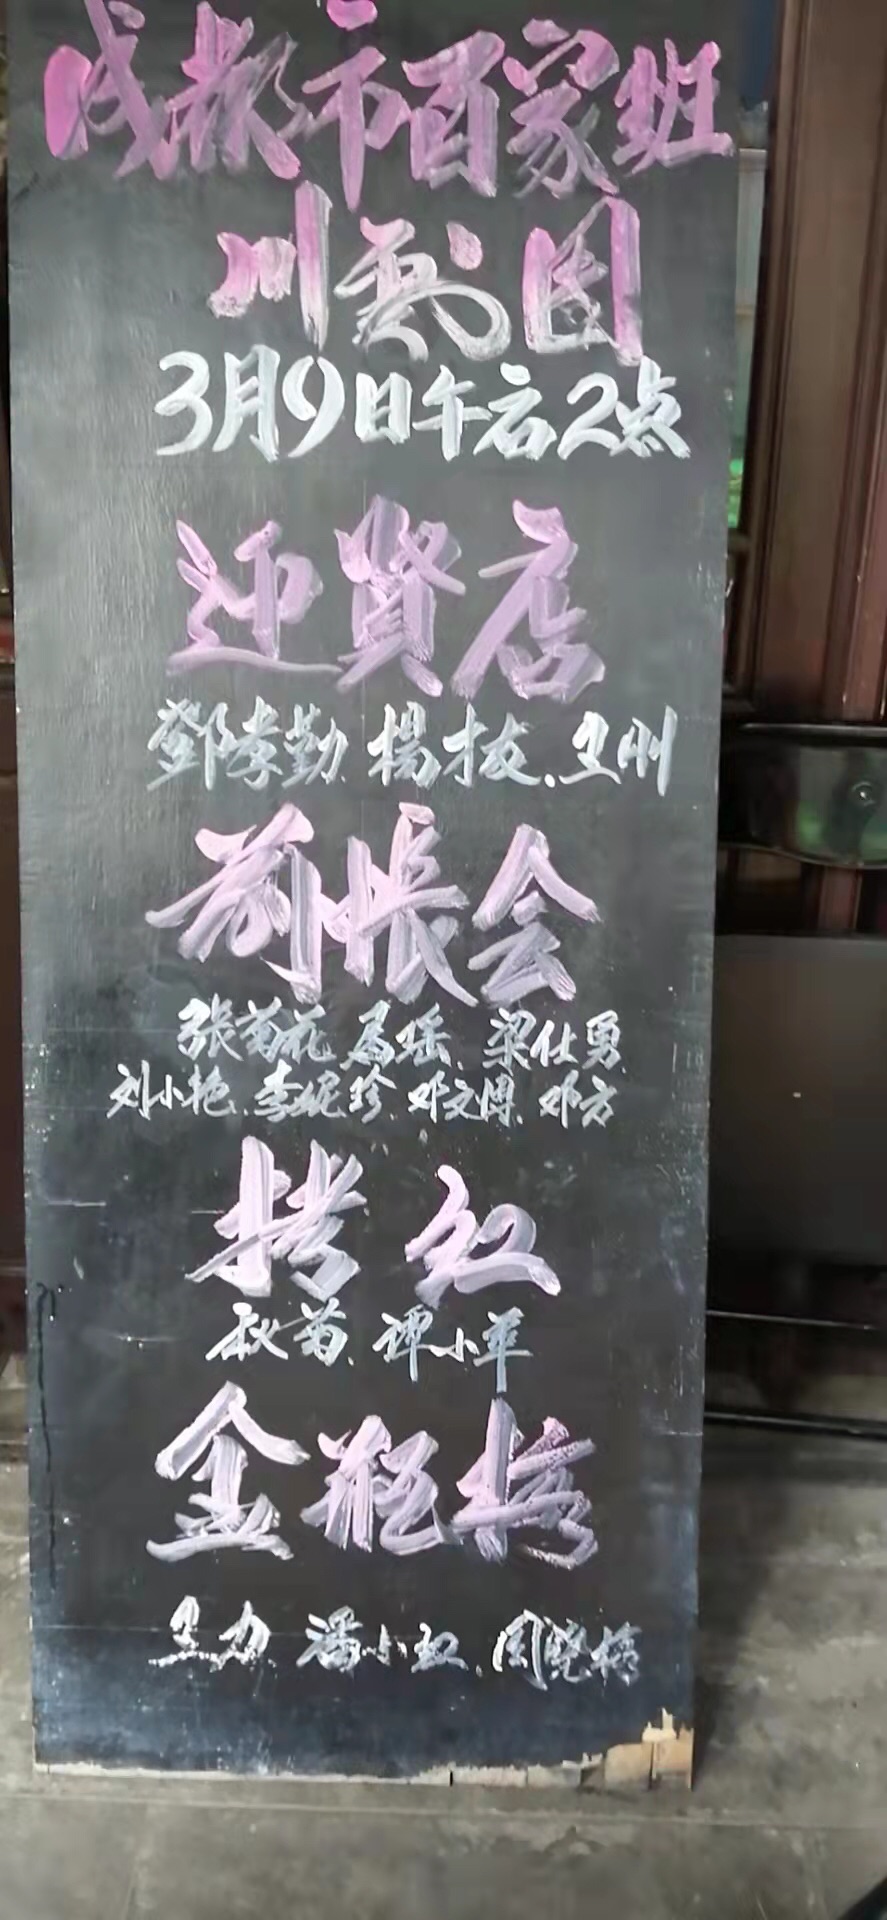 成都市百家班
川戏团
3月9日午后2点
迎賢店
鄧孝勤、楊拔、王刚
前帐会
张菊花、马瑶、梁仕勇、
刘小艳、李妮珍、邓文博、邓方
拷红
秋菊、谭小苹
金瓶梅
王力、潘小红、周晓梅